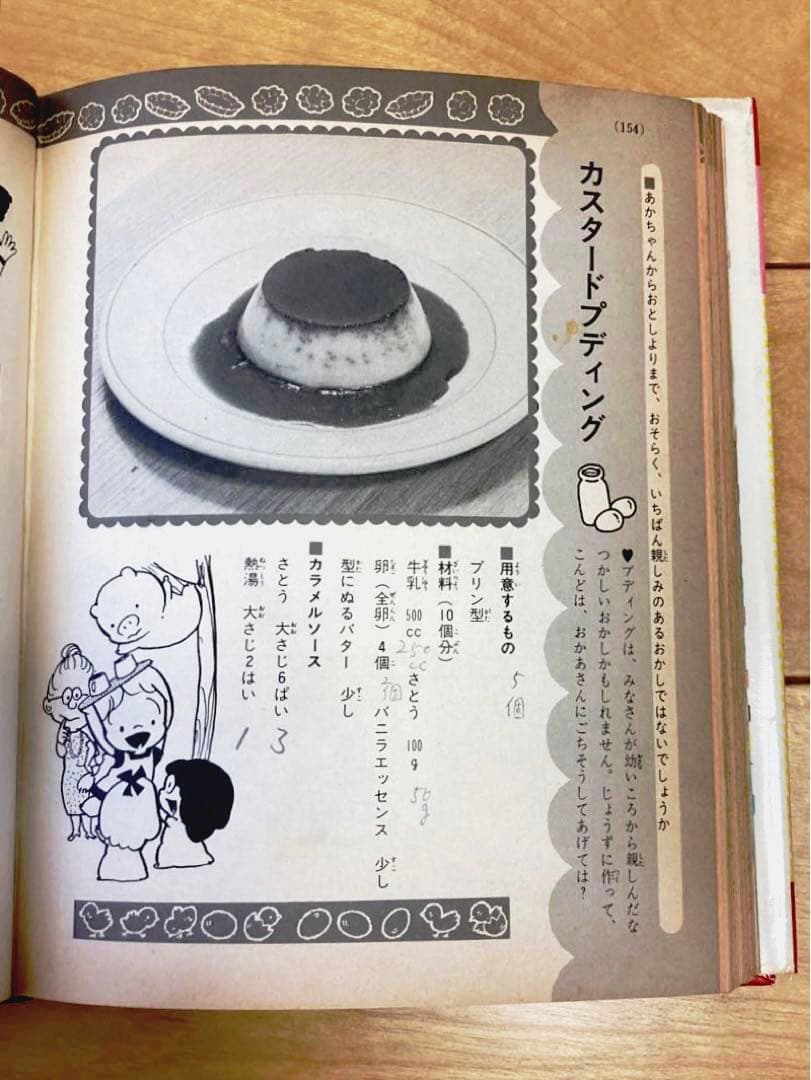 (154)
■あかちゃんからおとしよりまで、おそらく、いちばん親しみのあるおかしではないでしょうか
カスタードプディング
♥プディングは、みなさんが幼いころから親しんだな
つかしいおかしかもしれません。じょうずに作って、
こんどは、おかあさんにごちそうしてあげては？
■用意するもの
5個
プリン型
■材料(10個分)
牛乳 500cc さとう 100g
250cc
50g
卵(全卵) 4個 バニラエッセンス 少し
2個
型にぬるバター 少し
■カラメルソース
さとう 大さじ6ぱい
3
熱湯 大さじ2はい
1